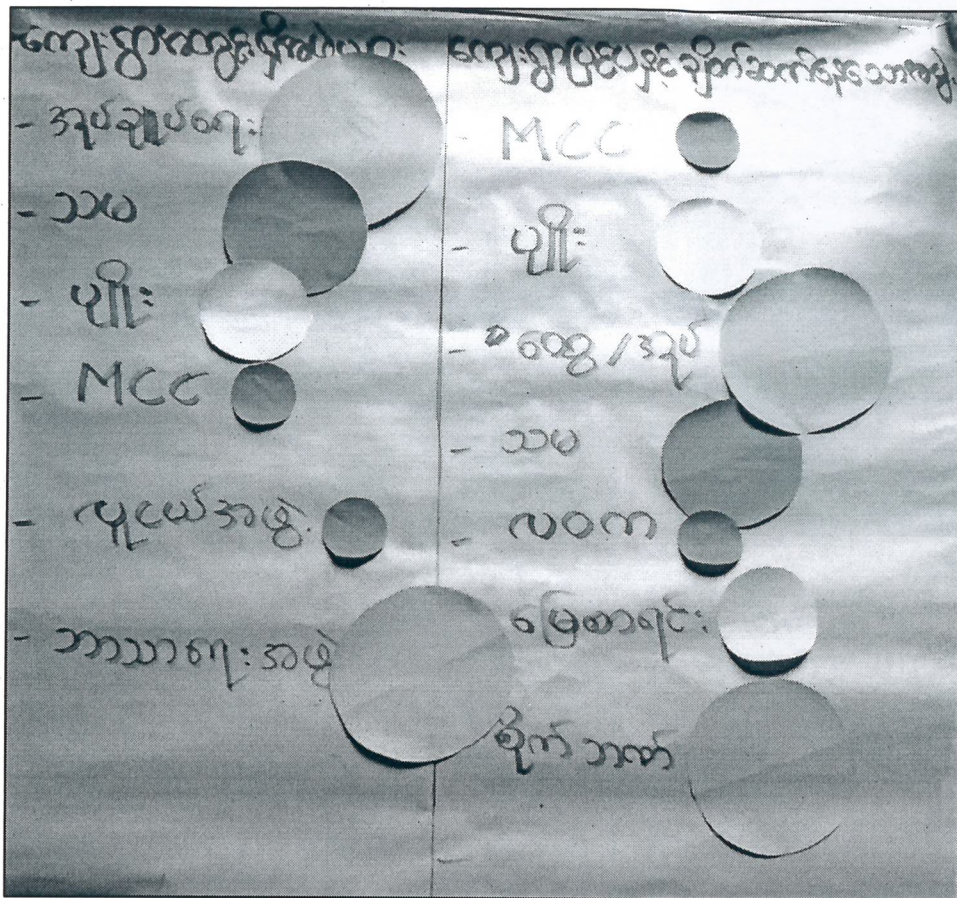 ကျေးရွာတွင်းရှိအဖွဲ့များ
- အုပ်ချုပ်ရေး
- သမ
- ပျိုး
- MCC
- လူငယ်အဖွဲ့
- ဘာသာရေးအဖွဲ့
ကျေးရွာပြင်ပနှင့်ချိတ်ဆက်နေသောအဖွဲ့
- MCC
- ပျိုး
- ထွေ/အုပ်
- သမ
- လဝက
မြေစာရင်း
စိုက်ဘဏ်